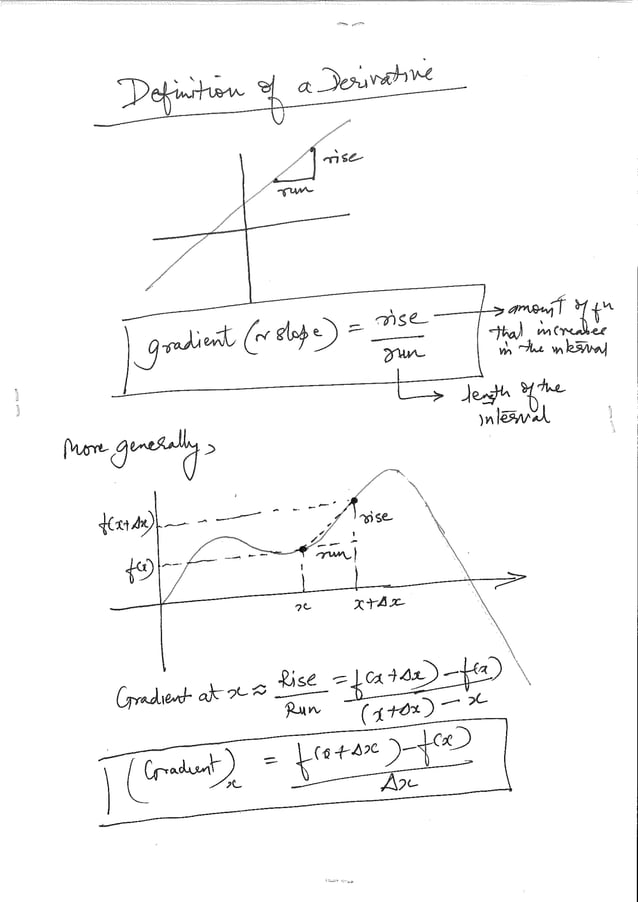 Definition of a Derivative
rise
run
gradient (or slope) = rise / run
amount of fn
that increases
in the interval
length of the
interval
More generally,
f(x+Δx)
f(x)
rise
run
x
x+Δx
Gradient at x ≈ Rise / Run = f(x+Δx) - f(x) / (x+Δx) - x
(Gradient)x = f(x+Δx) - f(x) / Δx